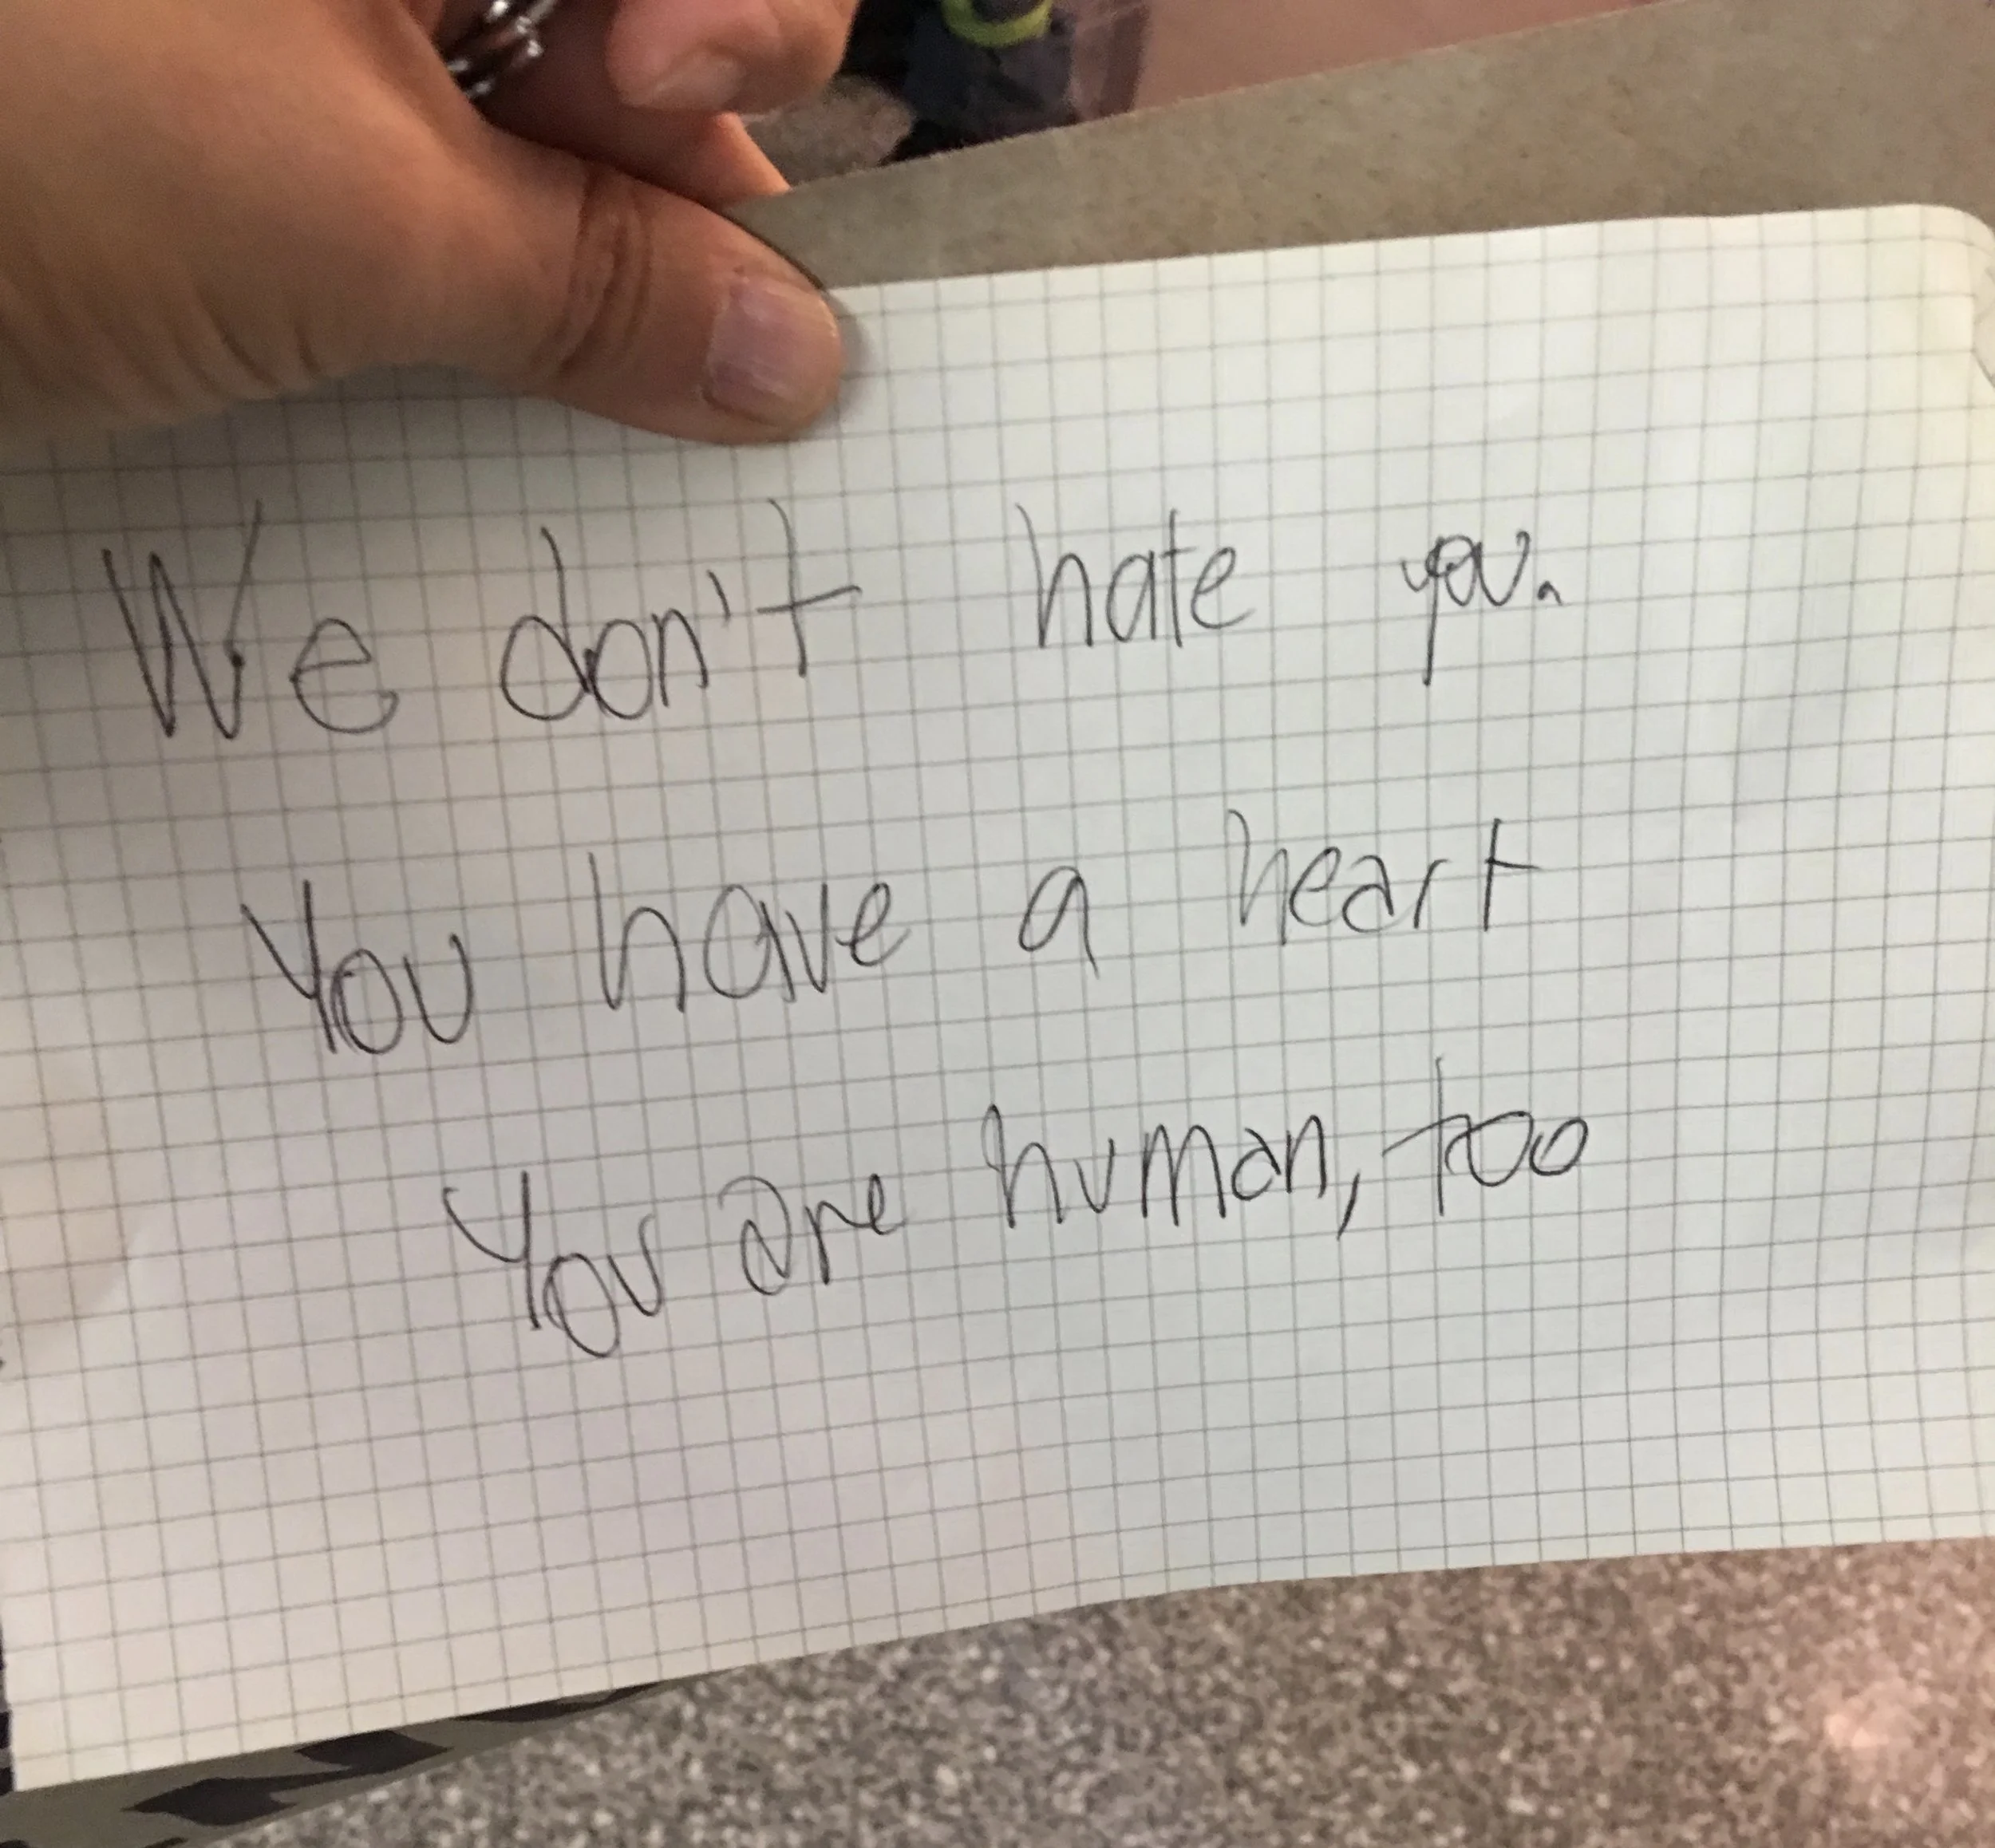 We don't hate you.
You have a heart
You are human, too